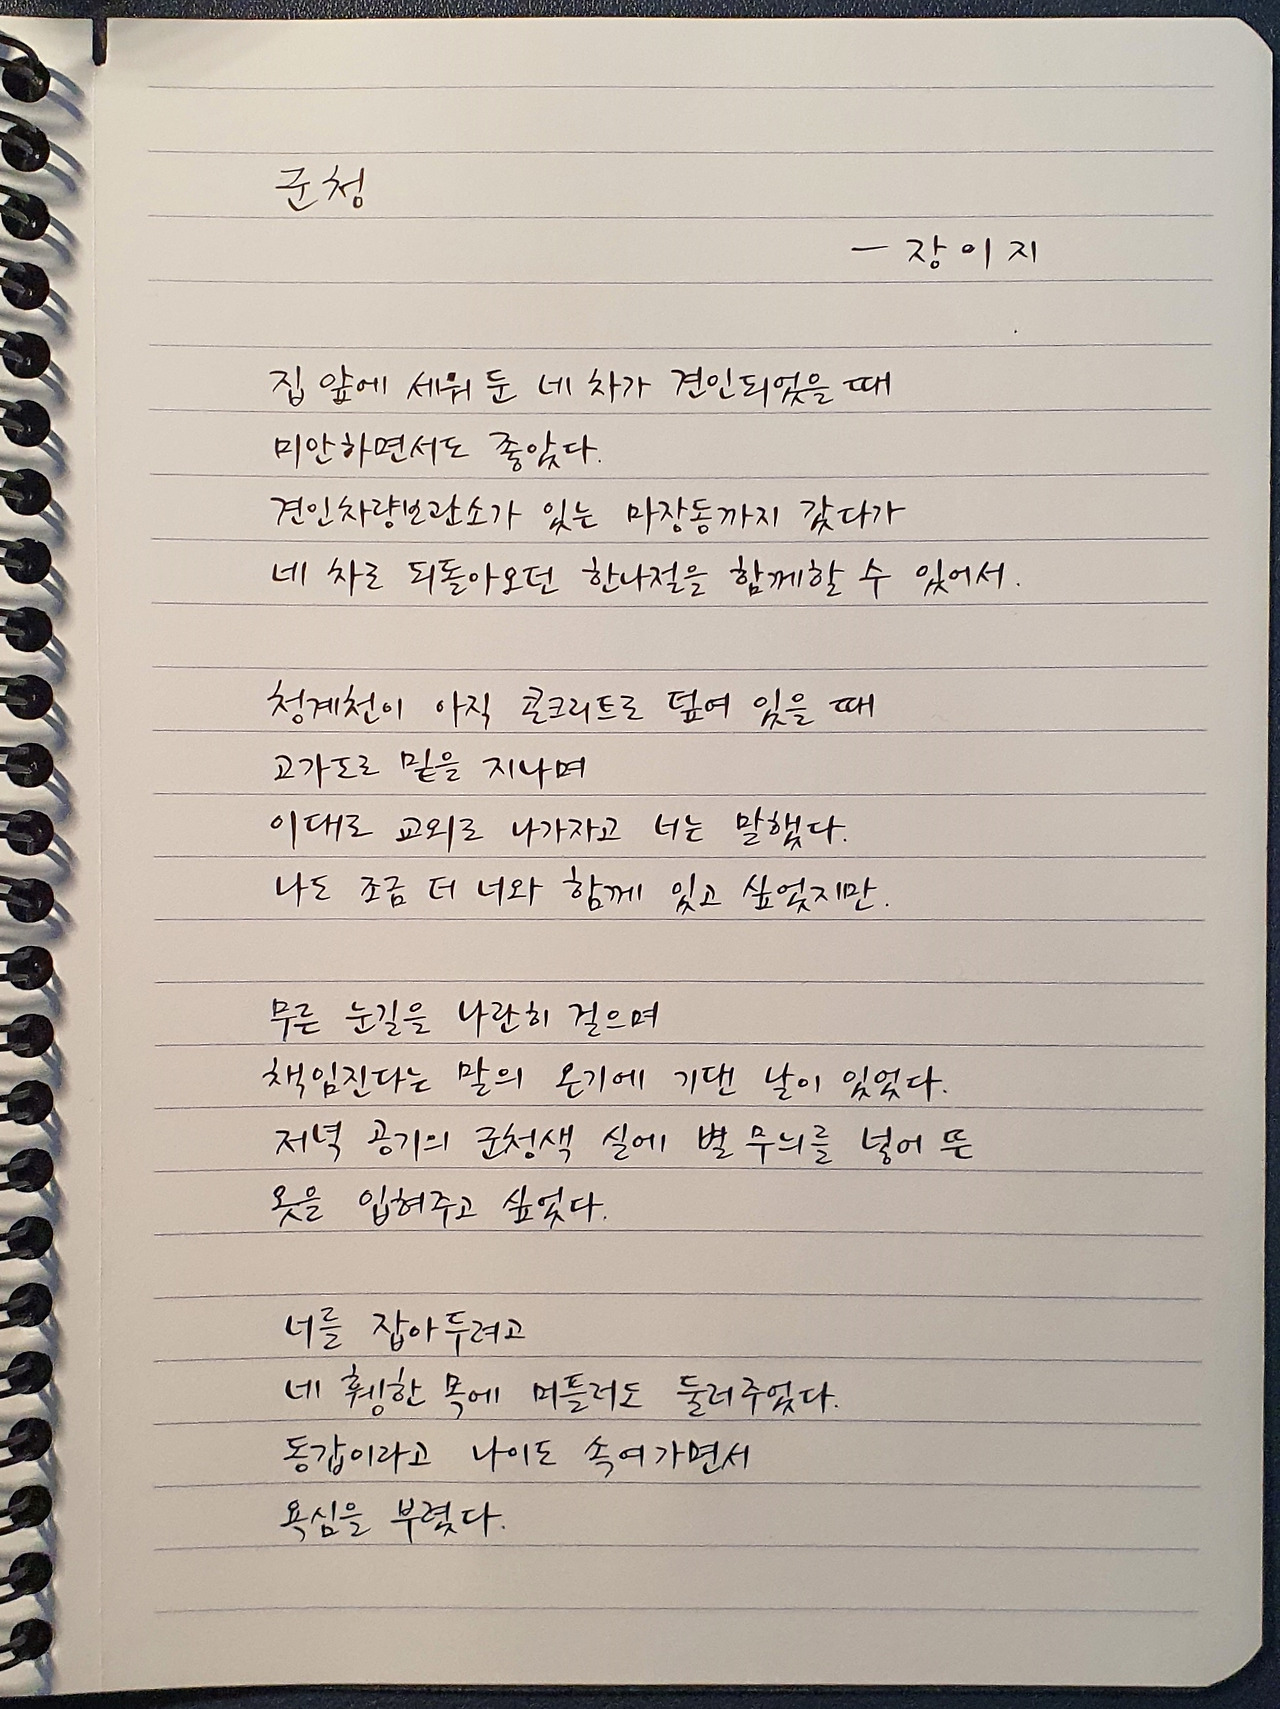 군청
- 장이지
집 앞에 세워 둔 네 차가 견인되었을 때
미안하면서도 좋았다.
견인차량보관소가 있는 마장동까지 갔다가
네 차로 되돌아오던 한나절을 함께할 수 있어서.
청계천이 아직 콘크리트로 덮여 있을 때
고가도로 밑을 지나며
이대로 교외로 나가자고 너는 말했다.
나도 조금 더 너와 함께 있고 싶었지만.
무른 눈길을 나란히 걸으며
책임진다는 말의 온기에 기댄 날이 있었다.
저녁 공기의 군청색 실에 별 무늬를 넣어 뜬
옷을 입혀주고 싶었다.
너를 잡아두려고
네 휑한 목에 머플러도 둘러주었다.
동갑이라고 나이도 속여가면서
욕심을 부렸다.